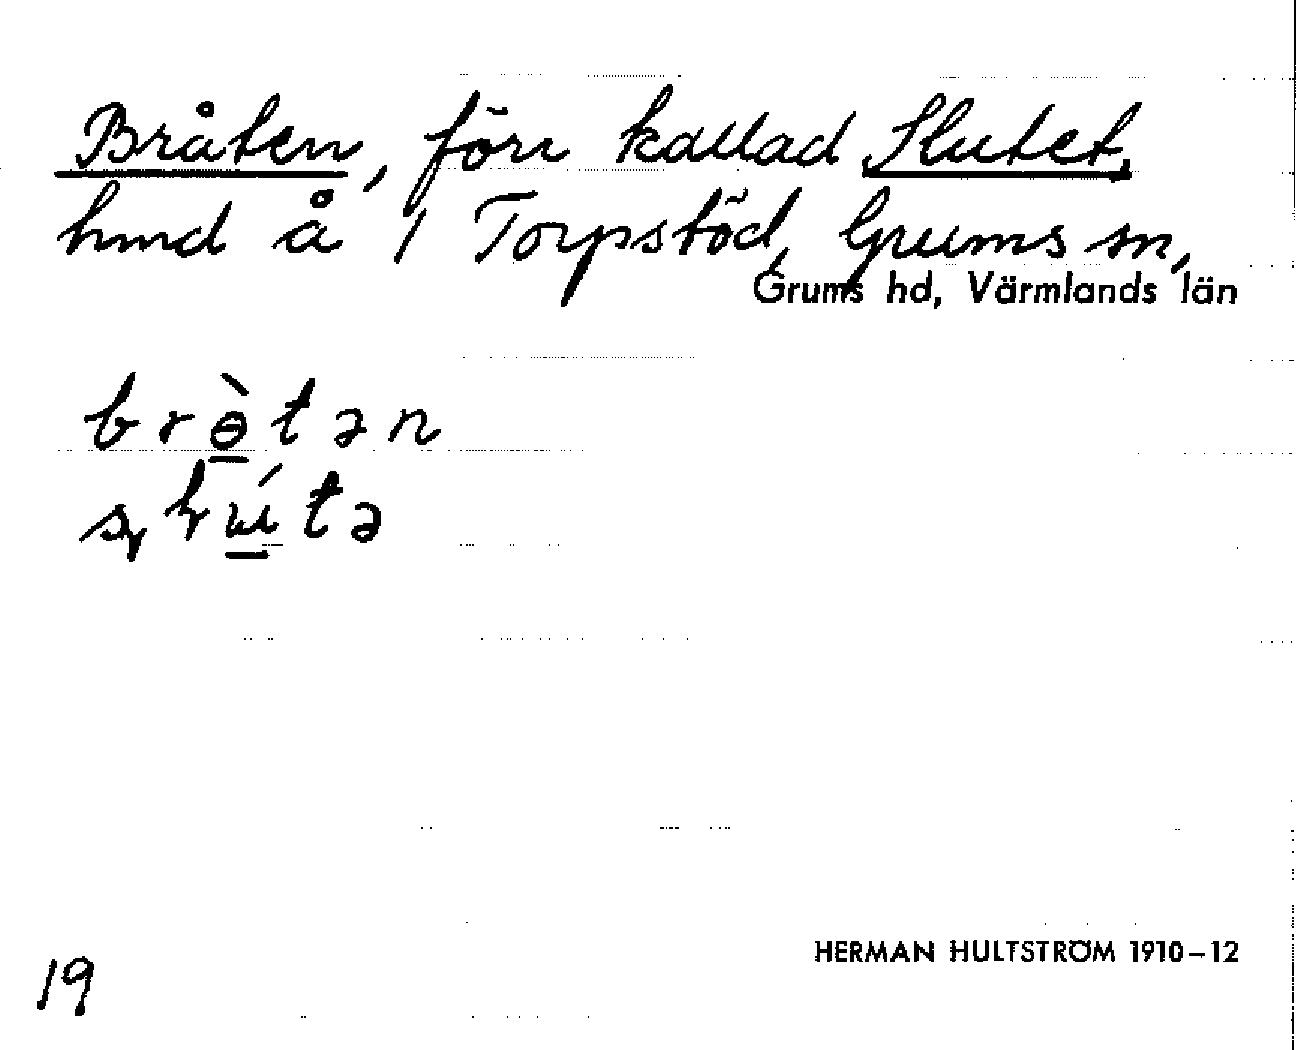 Bråten, förr kallad Slutet,
hmd å 1 Torpstöd, Grums sn,
Grums hd, Värmlands län
brɵ̀tən
19
HERMAN HULTSTRÖM 1910–12